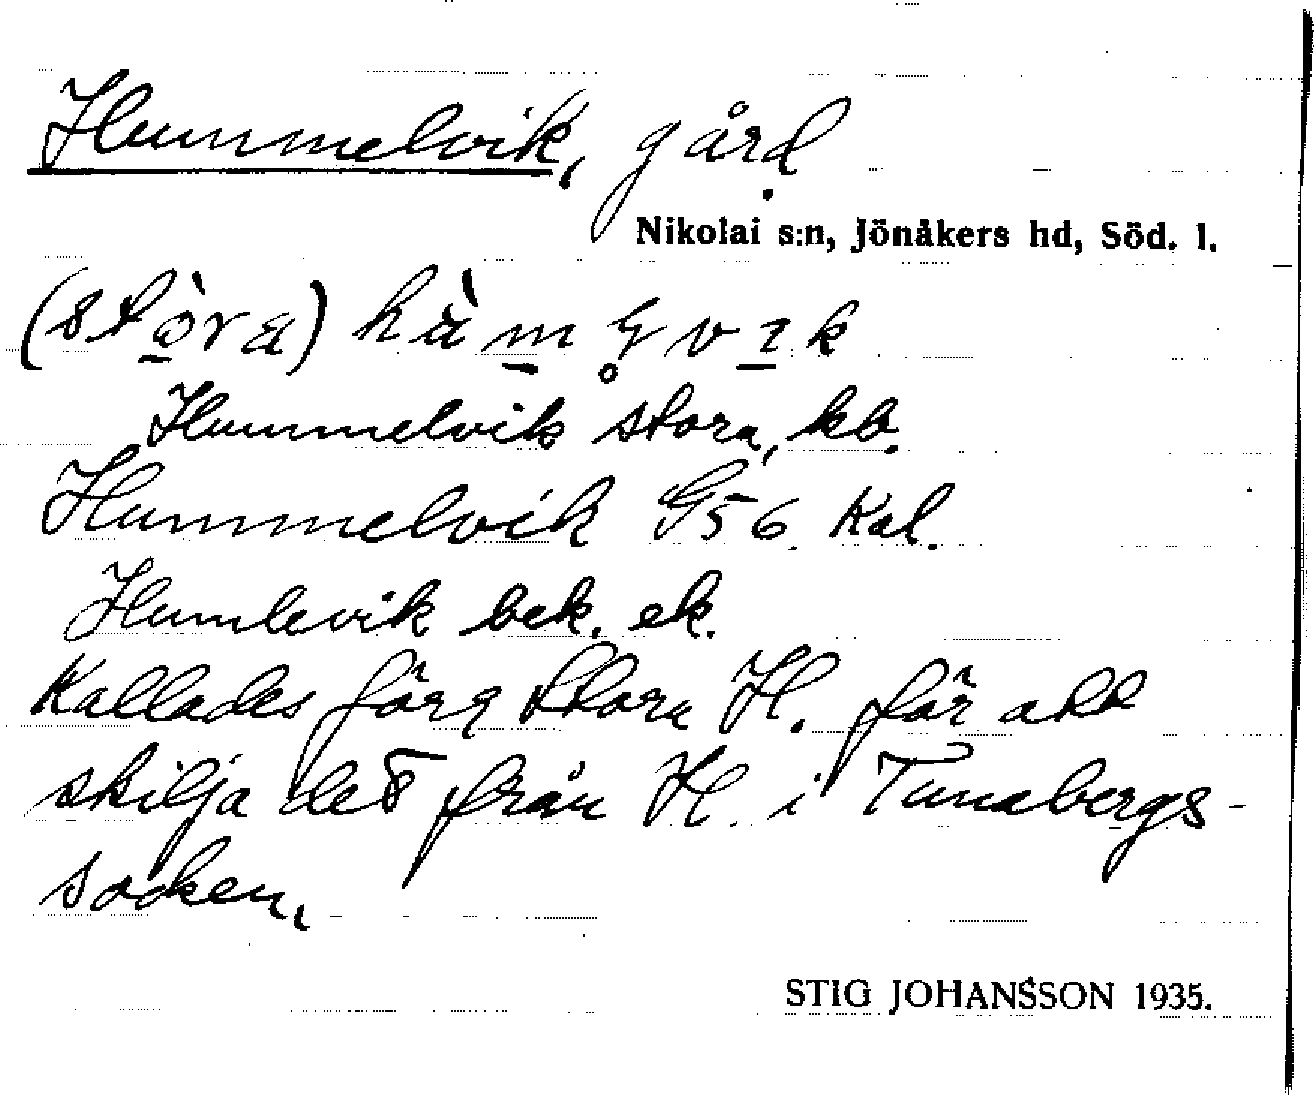 Hummelvik, gård
Nikolai s:n, Jönåkers hd, Söd. l.
(stòra)
Hummelvik stora, kb.
Hummelvik G56 Kal.
Humlevik bek. ek.
Kallades förr Stora H. för att
skilja det från H. i Tunabergs-
socken.
STIG JOHANSSON 1935.